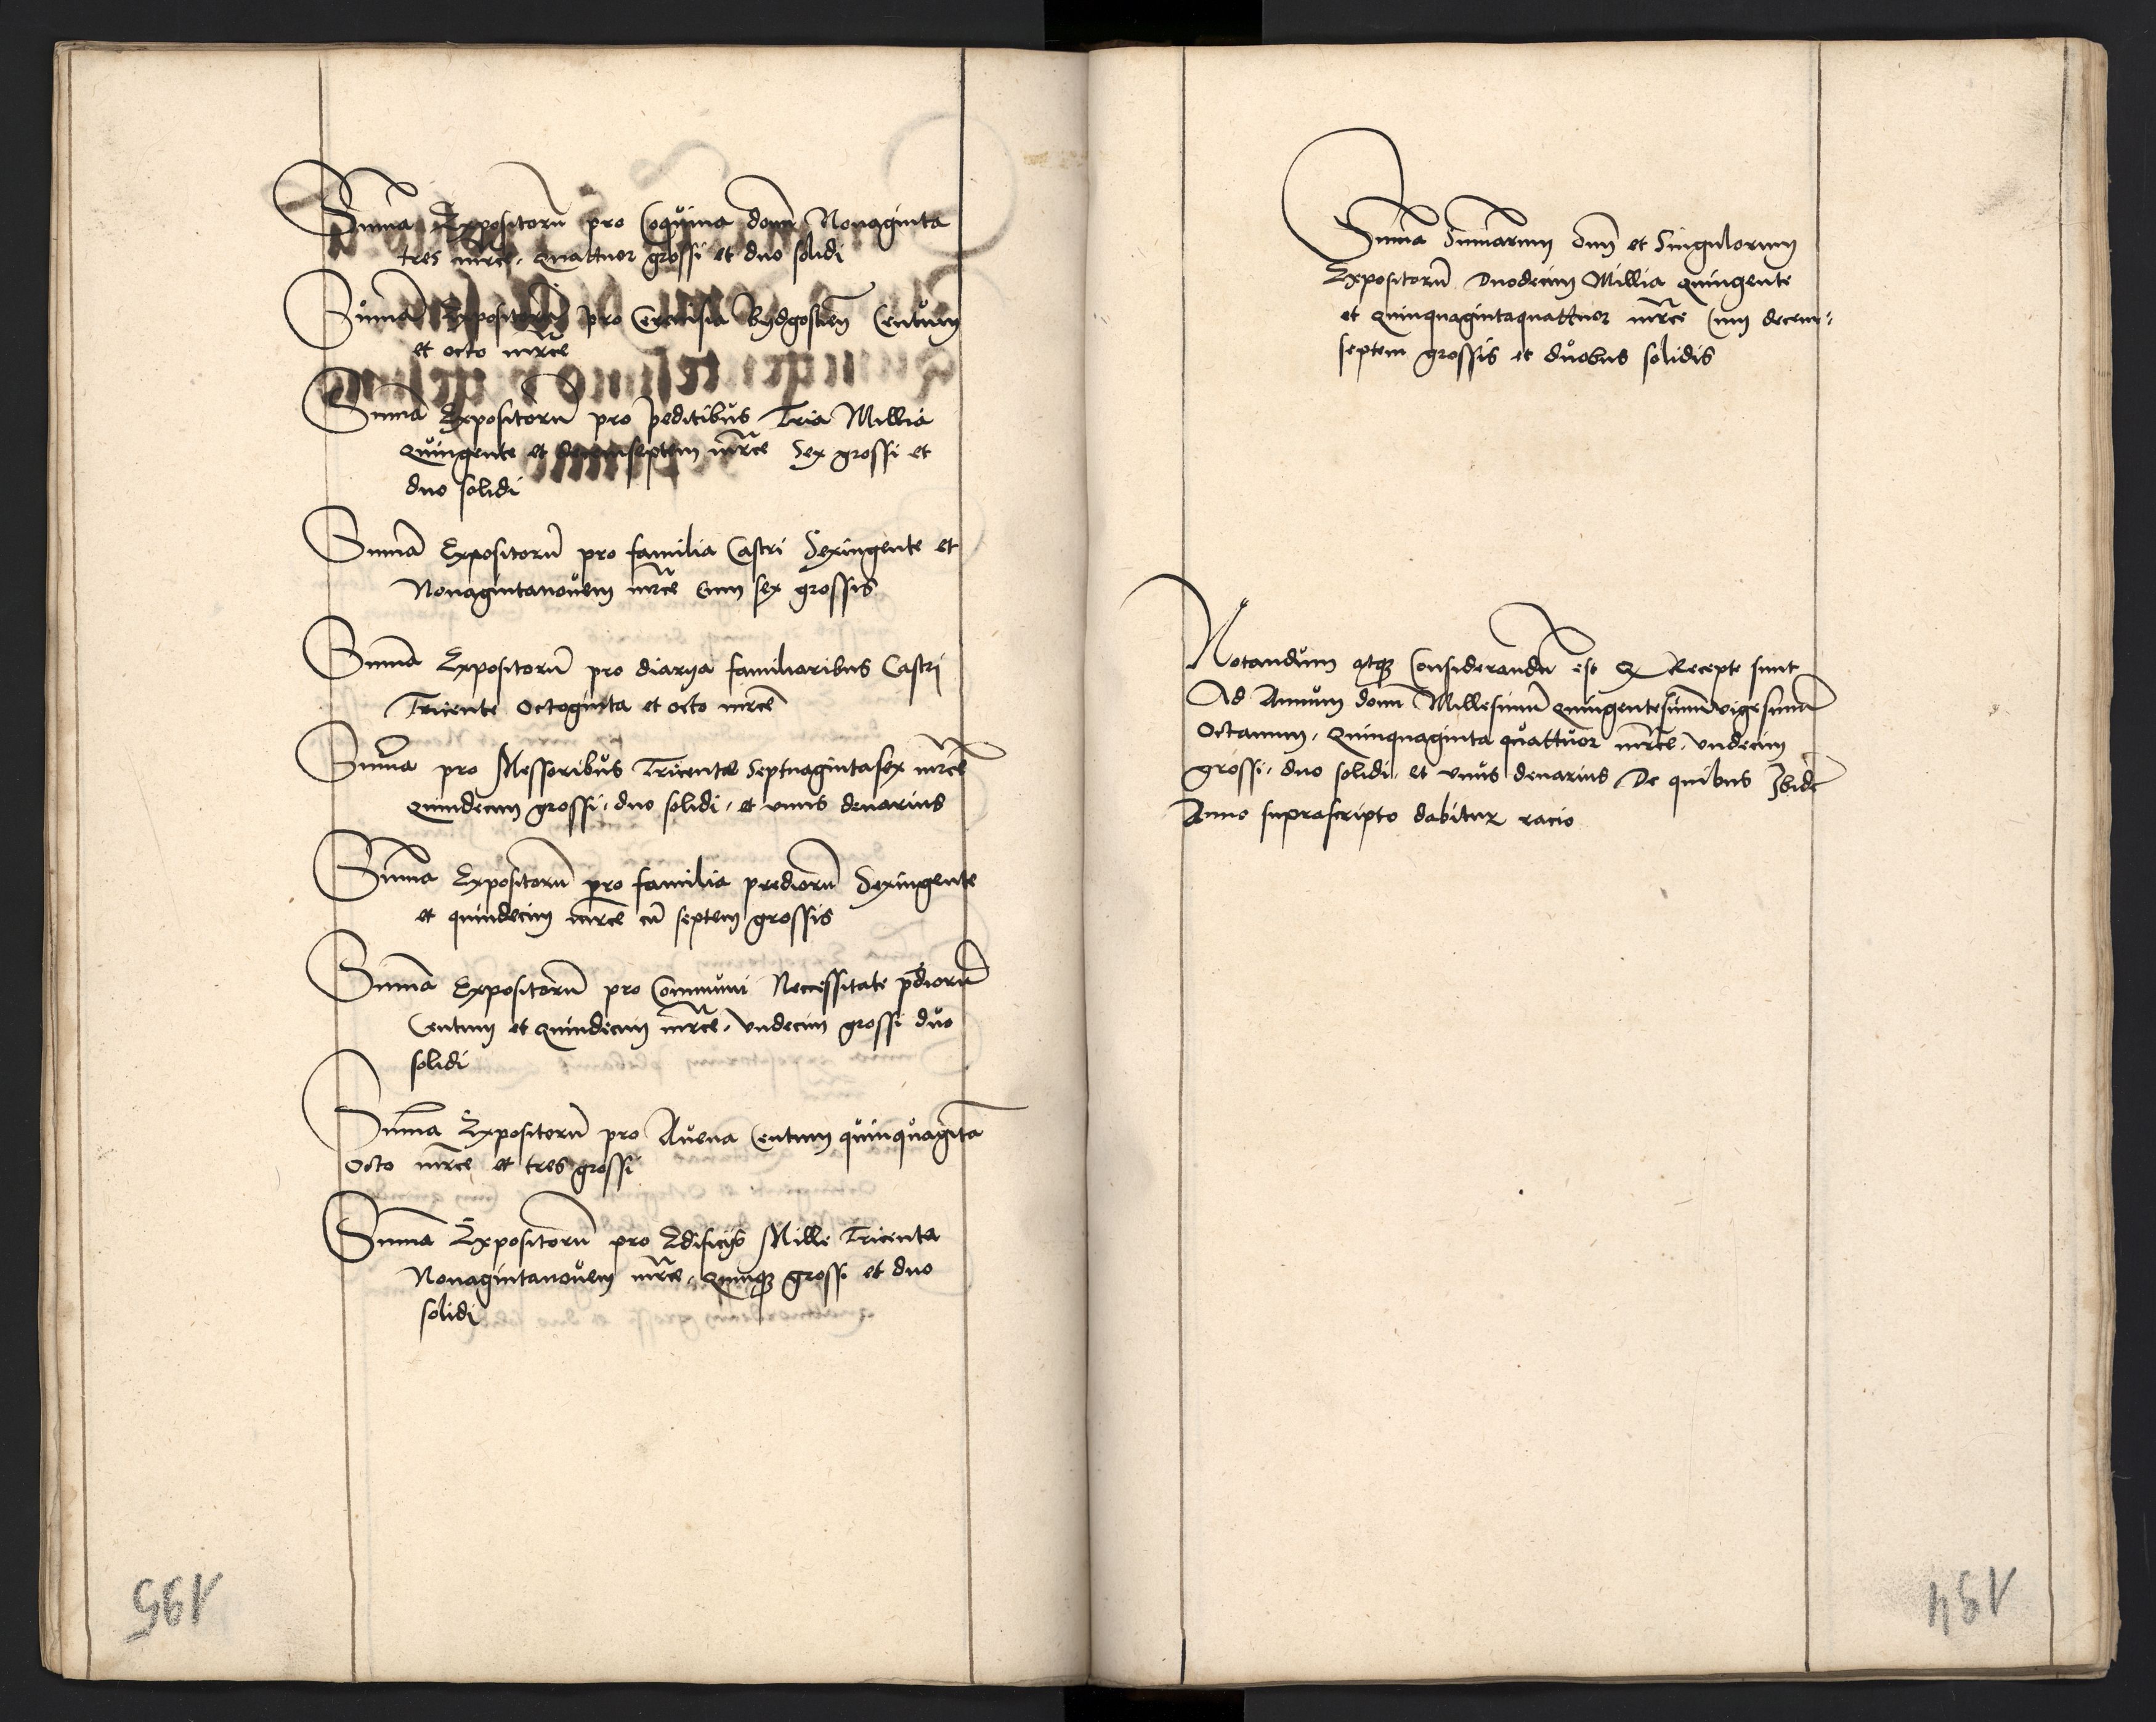 Sum̄a Expositorū pro Coquina domī Nonaginta
tres mrce, Quattuor grossi et duo solidi
Sum̄a Expositorū pro Cerevisia bydgostien̄ Centum
et octo mrce
Sum̄a Expositorū pro peditibus Tria Millia
Quingente et decemseptem mrce Sex grossi et
duo solidi
Sum̄a Expositorū pro familia Castri Sexingente et
Nonagintanovem mrce Cum sex grossis
Sum̄a Expositorū pro diarya familiaribus Castri
Tricente Octoginta et octo mrce
Sum̄a pro Messoribus Tricente Septuagintasex mrce
quindecim grossi, duo solidi, et unus denarius
Sum̄a Expositorū pro familia prediorū Sexingente
et quindecim mrce cū septem grossis
Sum̄a Expositorū pro Communi Necessitate pdiorū
Centum et Quindecim mrce, Undecim grossi duo
solidi
Sum̄a Expositorū pro Avena Centum quinquaginta
octo mrce et tres grossi
Sum̄a Expositorū pro Edificijs Mille Tricenta
Nonagintanovem mrce, Quinqz grossi et duo
solidi
195
Sum̄a Sum̄arum Om̄ et Singulorum
Expositorū Duodecim Millia Quingente
et Quinquagintaquattuor mrce Cum decem-
septem grossis et duobus solidis
Notandum atqz Considerandū est Q Recepte sunt
Ad Annum domī Millesimū Quingentesimū vigesimū
Octauum, Quinquaginta quattuor mrce, Undecim
grossi, duo solidi, et unus denarius De quibus Ibidē
Anno suprascripto dabitur racio
194